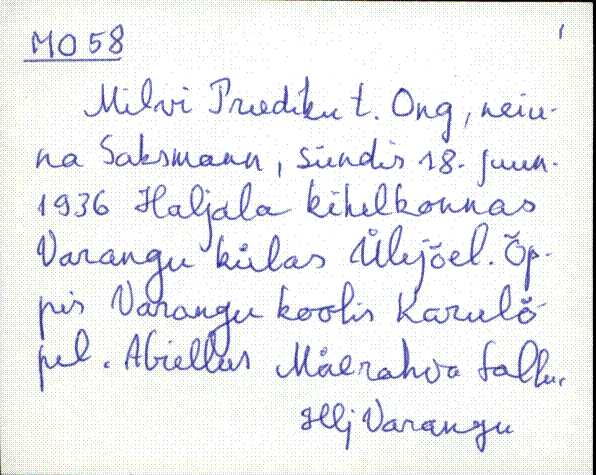 MO 58
1
Milvi Priediku t. Ong, neiu-
na Saksmann, sündis 18. juun.
1936 Haljala kihelkonnas
Varangu külas Ülejõel. Õp-
pis Varangu koolis Karulõ-
pel. Abiellus Mäerahva
Hlj Varangu